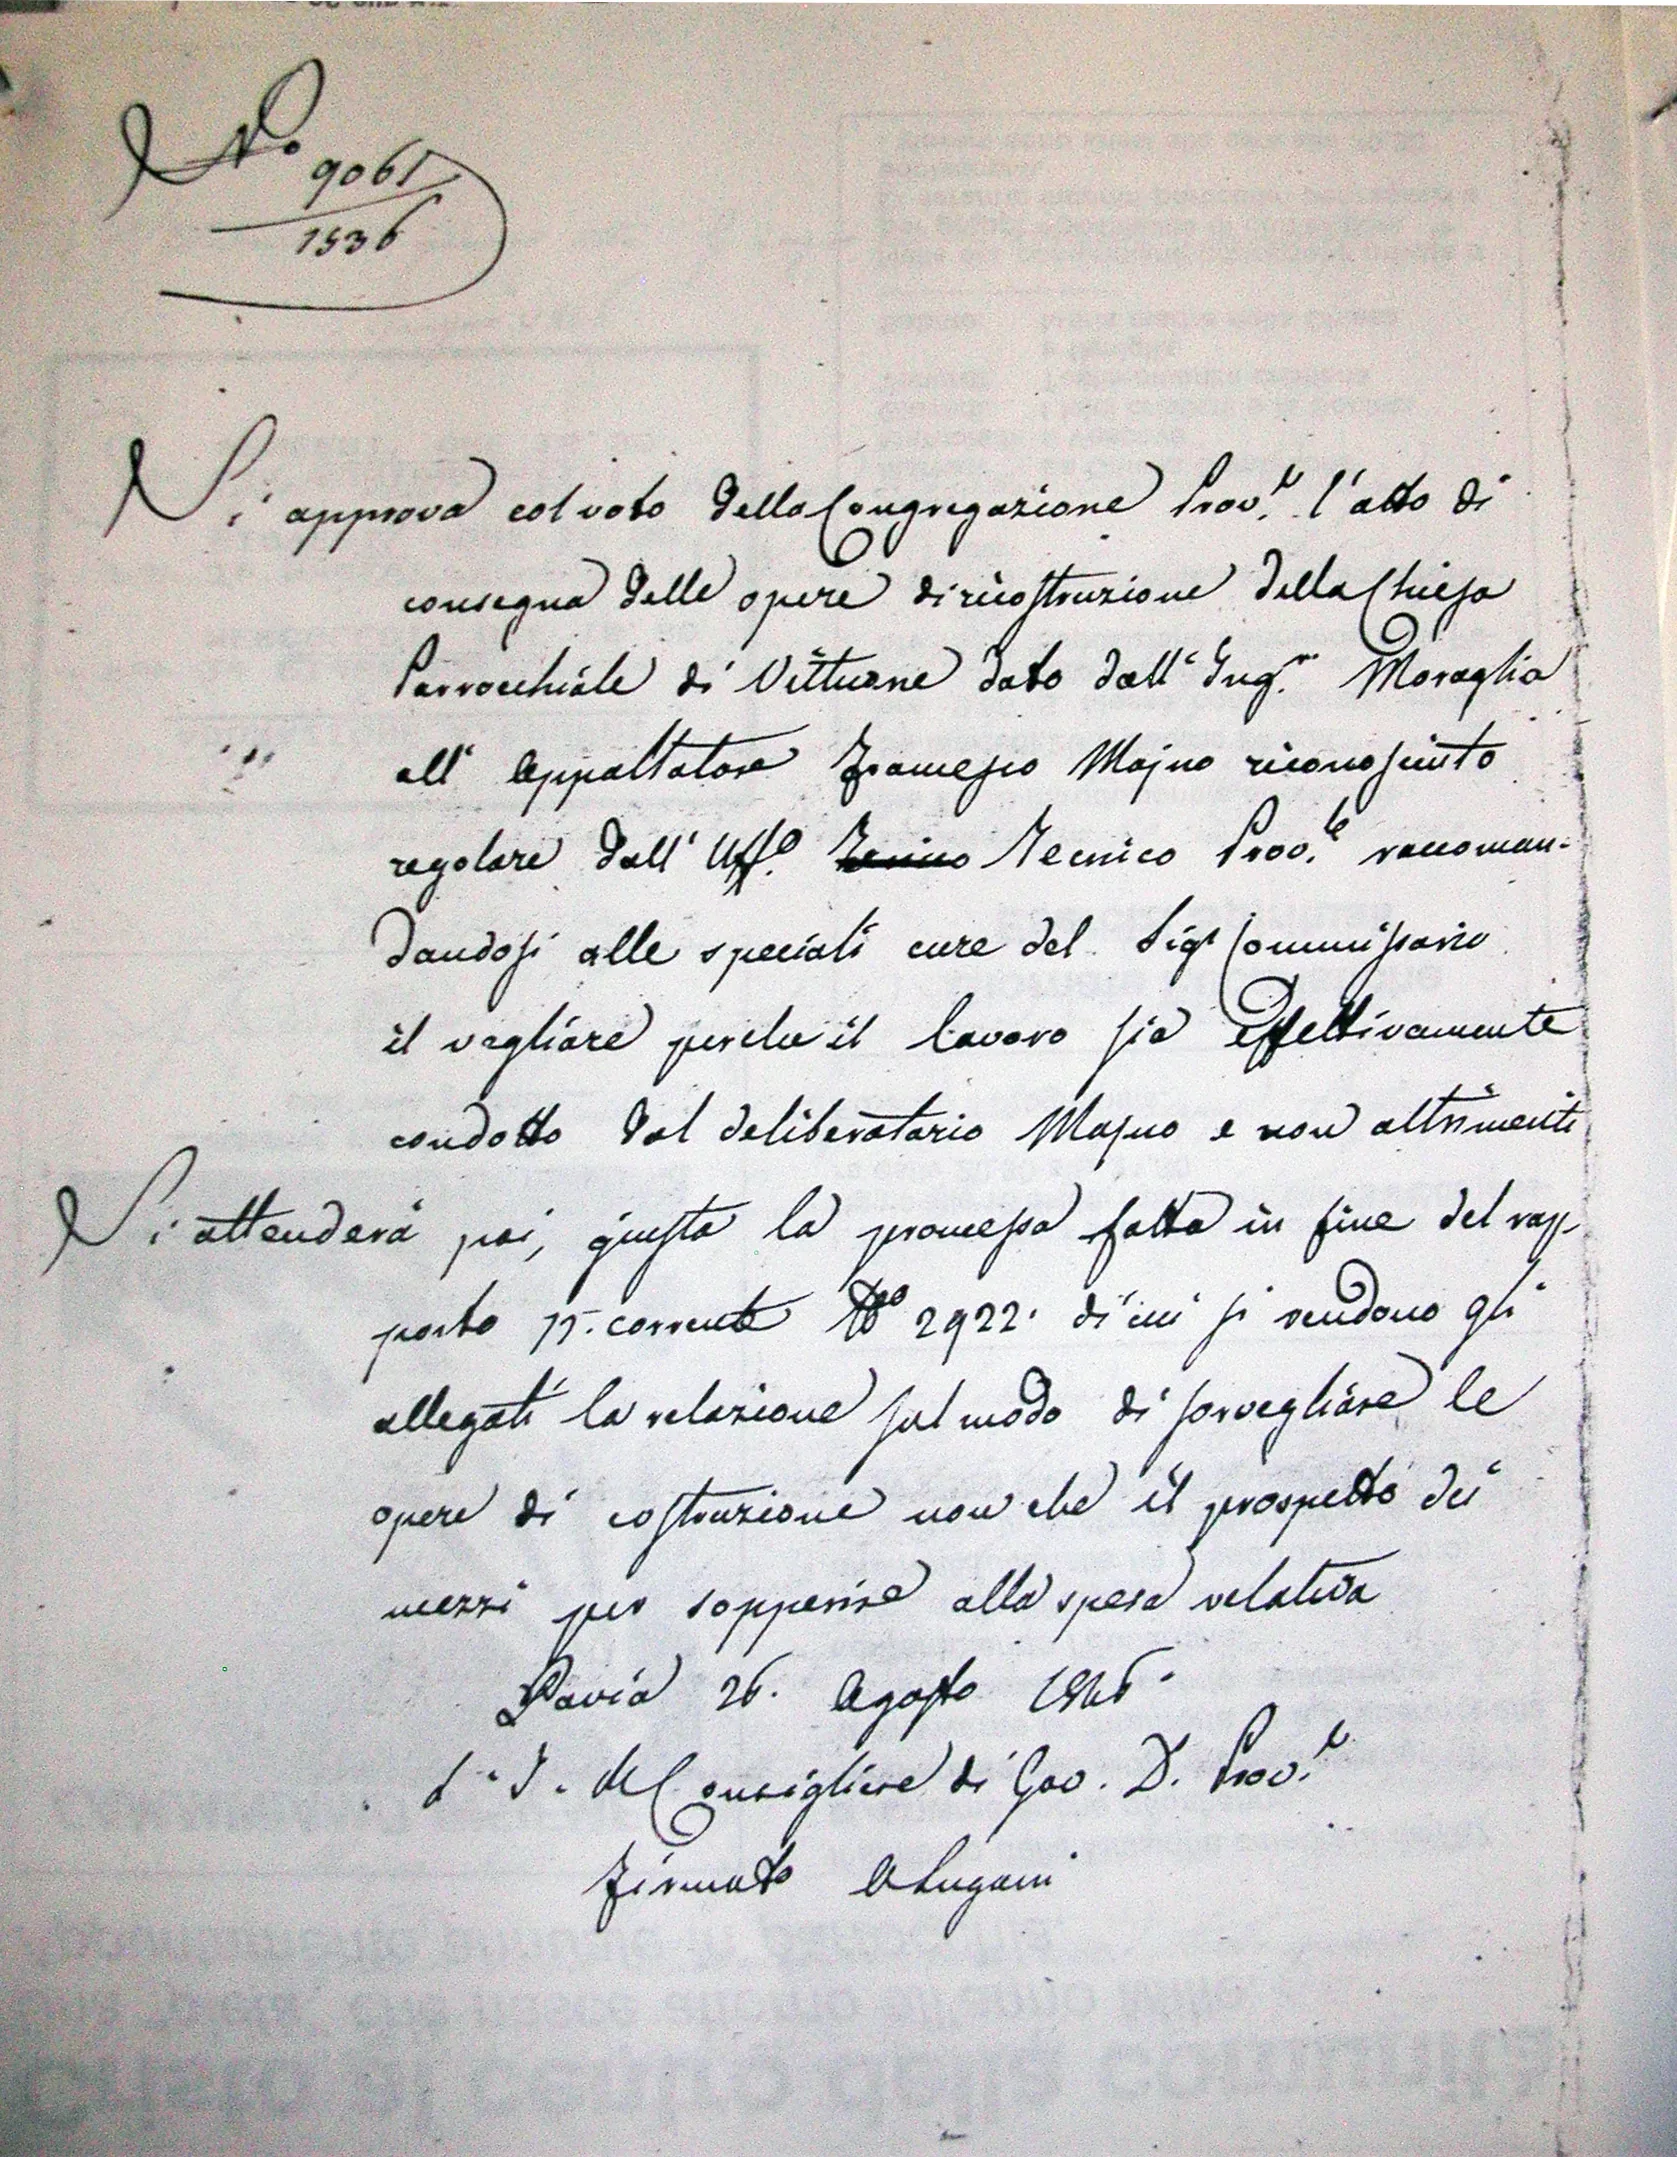 N.o 9061
1536
Si approva col voto della Congregazione Prov.le l'atto di
consegna delle opere di ricostruzione della Chiesa
Parrocchiale di Vittuone dato dall'Ing.re Moraglia
all'Appaltatore Francesco Majno riconosciuto
regolare dall'Uff.o Tecnico Prov.le raccoman=
dandosi alle speciali cure del Sig.r Commissario
il vegliare perche il lavoro sia effettivamente
condotto dal deliberatario Majno e non altrimenti
Si attenderà poi, giusta la promessa fatta in fine del rap-
porto corrente N.o 2922. di cui si rendono gli
allegati la relazione sul modo di sorvegliare le
opere di costruzione non che il prospetto dei
mezzi per sopperire alla spesa relativa
Pavia 26. Agosto 1846.
Consigliere di Gov. D. Prov.le
Firmato